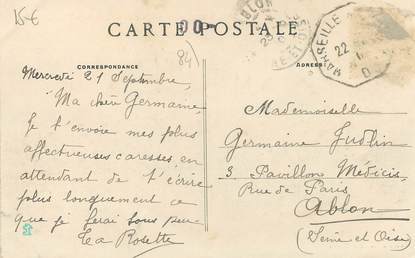 15€
CARTE POSTALE
CORRESPONDANCE
ADRESSE
84)
MARSEILLE
22
Mercredi 21 Septembre,
Ma chère Germaine,
Je t'envoie mes plus
affectueuses caresses, en
attendant de t'écrire
plus longuement ce
que je ferai sous peu
Ta Rosette
Mademoiselle
Germaine Judlin
3 Pavillon Médicis,
Rue de Paris
Ablon
(Seine et Oise)